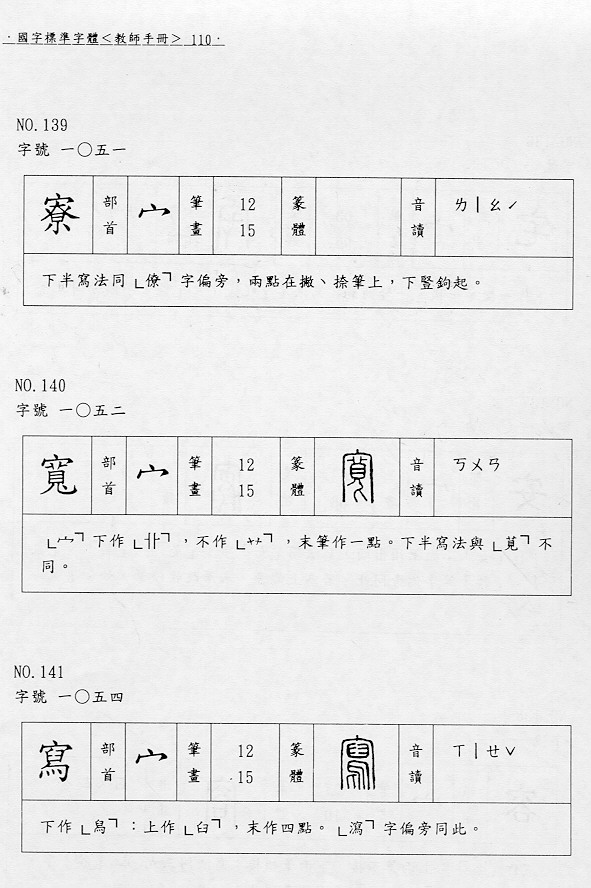 ·國字標準字體＜教師手冊＞ 110·
NO.139
字號 一〇五一
寮 部首 宀 筆畫 12 15 篆體 音讀 ㄌㄧㄠˊ
下半寫法同「僚」字偏旁，兩點在撇、捺筆上，下豎鉤起。
NO.140
字號 一〇五二
寬 部首 宀 筆畫 12 15 篆體 寬 音讀 ㄎㄨㄢ
「宀」下作「卝」，不作「艹」，末筆作一點。下半寫法與「莧」不
同。
NO.141
字號 一〇五四
寫 部首 宀 筆畫 12 15 篆體 寫 音讀 ㄒㄧㄝˇ
下作「舄」：上作「臼」，末作四點。「瀉」字偏旁同此。